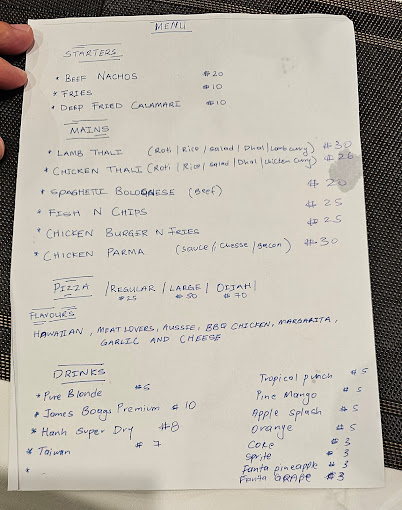 MENU
STARTERS
* BEEF NACHOS $20
* FRIES $10
* DEEP FRIED CALAMARI $10
MAINS
* LAMB THALI (Roti / Rice / Salad / Dhal / Lamb curry) $30
* CHICKEN THALI (Roti / Rice / Salad / Dhal / chicken curry) $26
* SPAGHETTI BOLOGNESE (Beef) $20
* FISH N CHIPS $25
* CHICKEN BURGER N FRIES $25
* CHICKEN PARMA (Sauce / Cheese / Bacon) $30
PIZZA / REGULAR / LARGE / OIJAH /
$25 $50 $70
FLAVOURS
HAWAIIAN, MEAT LOVERS, AUSSIE, BBQ CHICKEN, MARGARITA,
GARLIC AND CHEESE
DRINKS
* Pure Blonde $6
* James Boags Premium $10
* Hahn Super Dry $8
* Taiwan $7
*
Tropical punch $5
Pine Mango $5
Apple splash $5
Orange $5
Coke $3
Sprite $3
Fanta pineapple $3
Fanta GRAPE $3